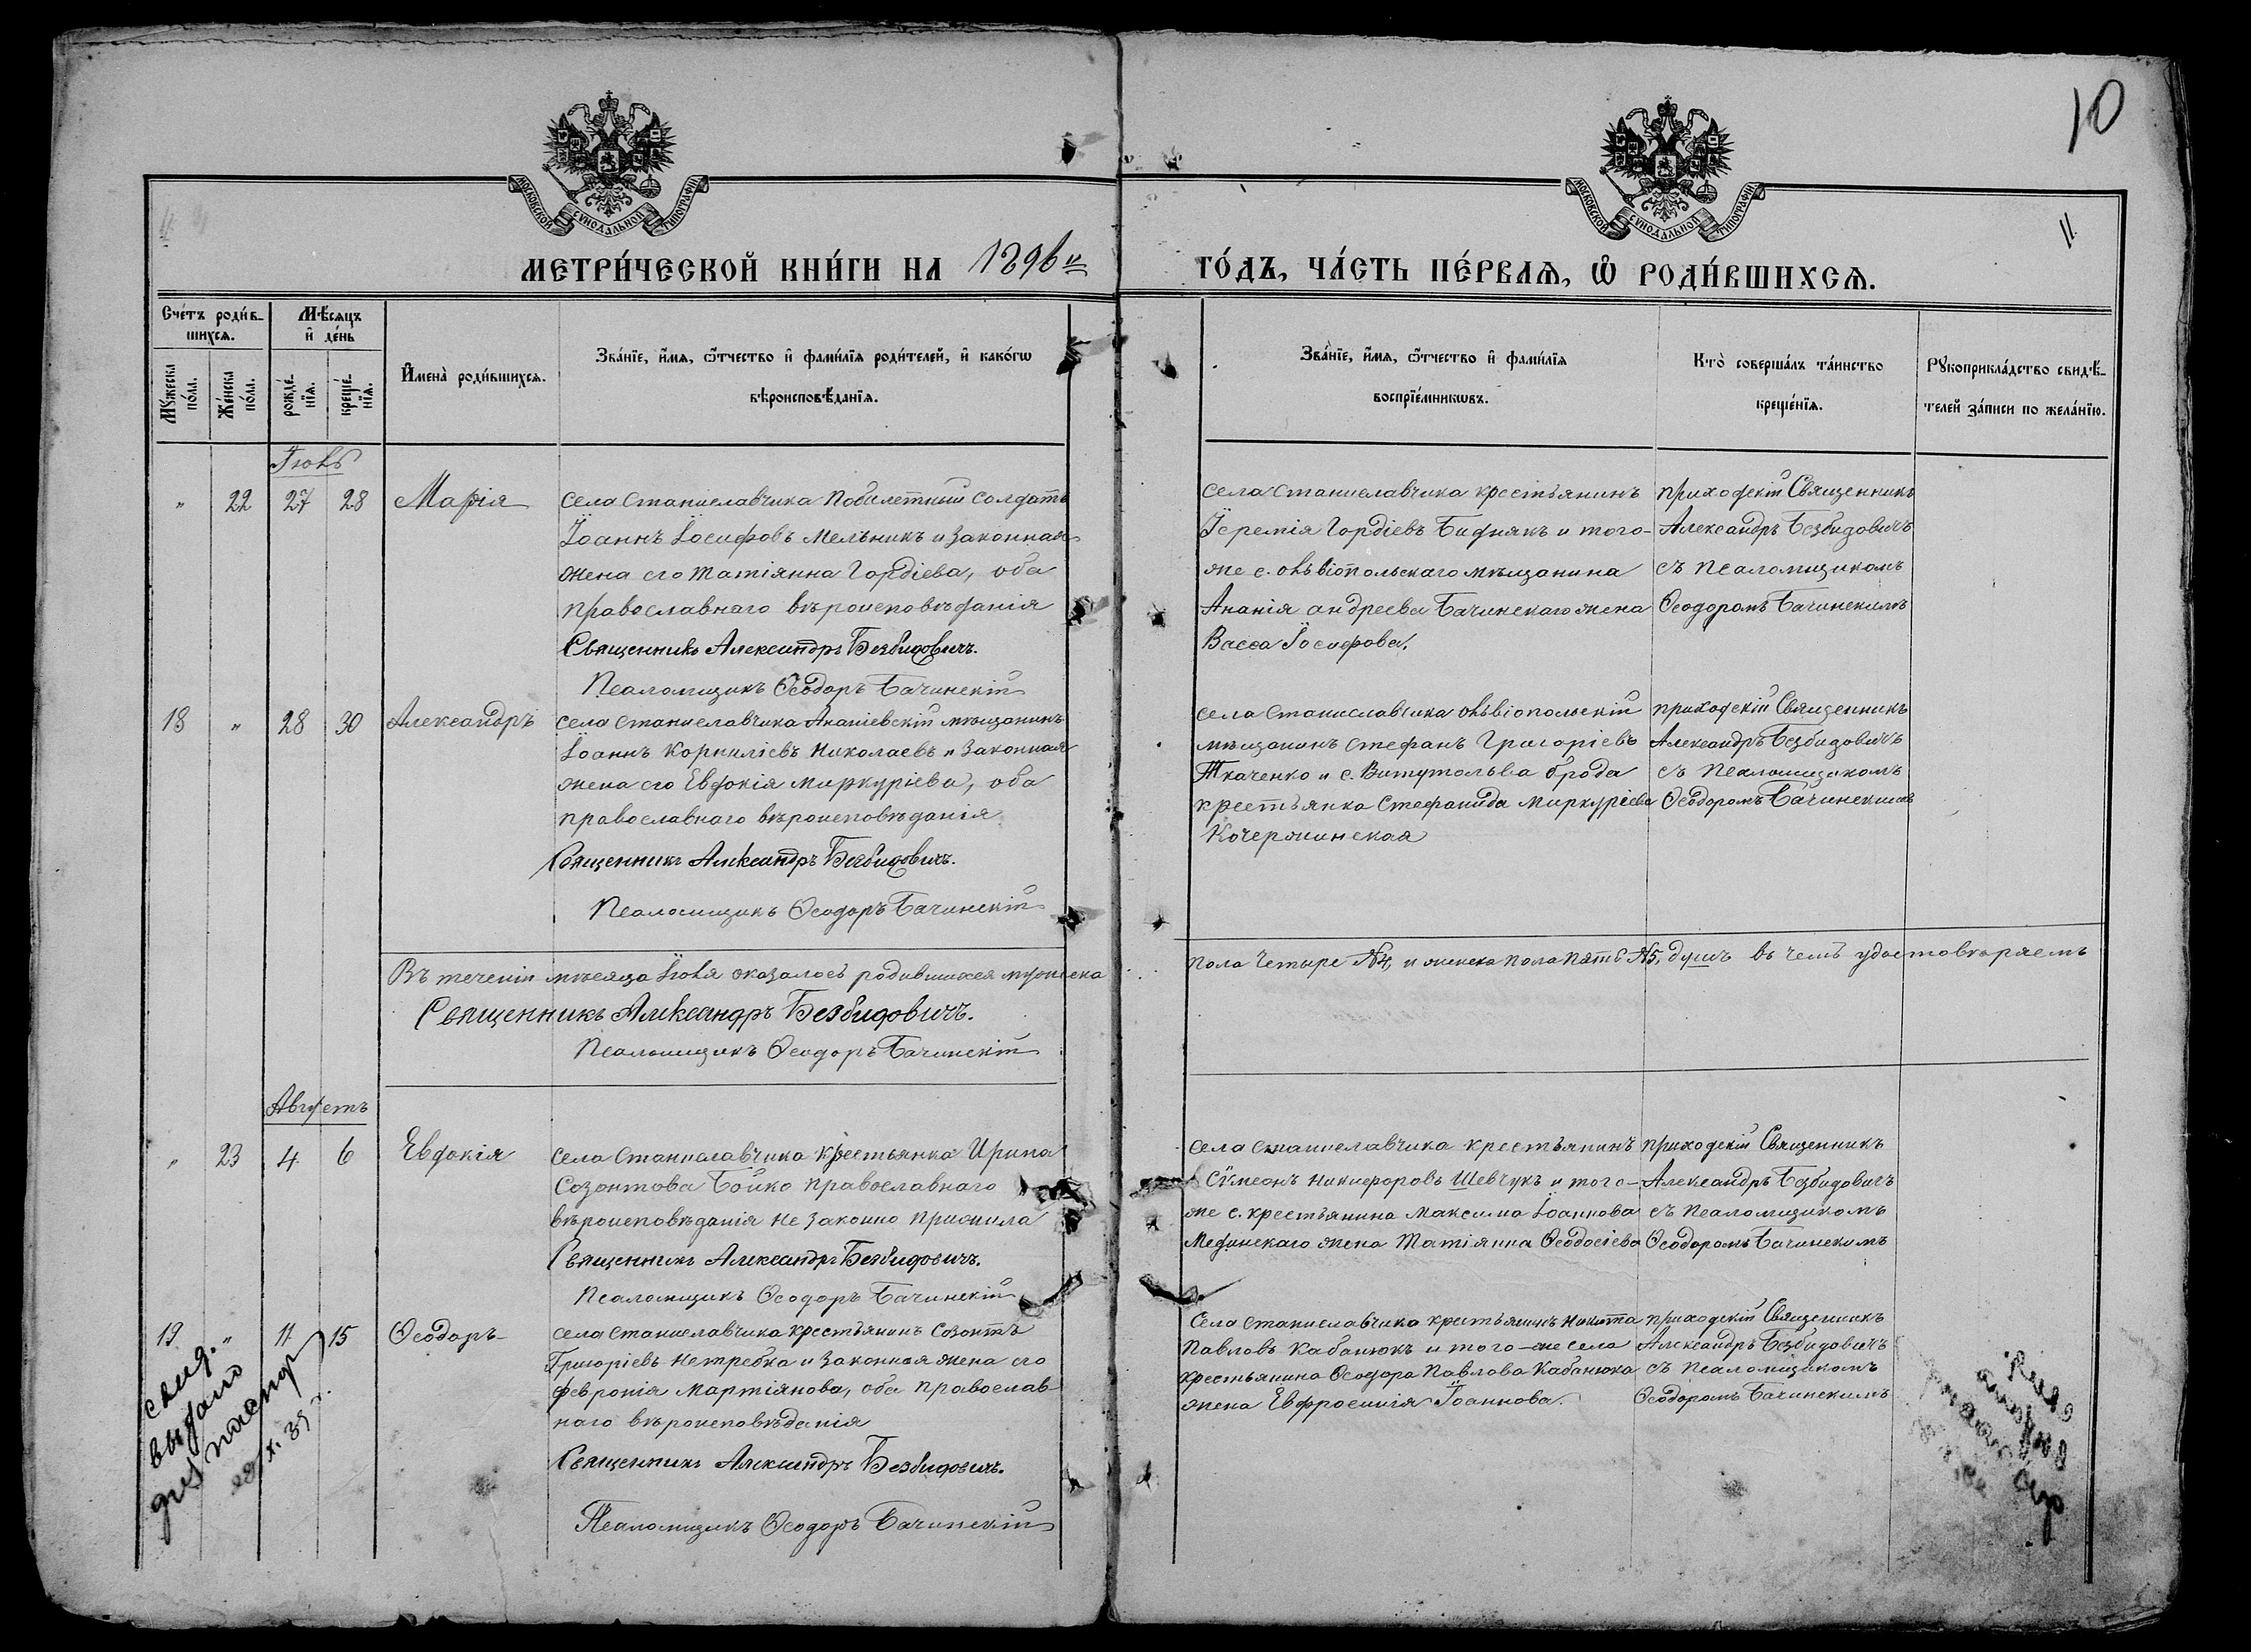 10
11.
МОСКОВСКОЙ СУНОДАЛЬНОЙ ТИПОГРАФІИ
МОСКОВСКОЙ СУНОДАЛЬНОЙ ТИПОГРАФІИ
МЕТРИ́ЧЕСКОЙ КНИ́ГИ НА 1896й
ГО́ДЪ, ЧА́СТЬ ПЕ́РВАѦ, Ѡ҆ РОДИ́ВШИХСѦ.
Сче́тъ роди́в-
шихсѧ.
Мѣ́сѧцъ
и҆ де́нь
Мꙋ́жеска по́ла.
Же́нска по́ла.
рожде́-
нїѧ.
креще́-
нїѧ.
И҆мена̀ роди́вшихсѧ.
Зва́нїе, и҆́мѧ, ѻ҆́тчество и҆ фами́лїѧ роди́телей, и҆ како́гѡ
вѣроисповѣ́данїѧ.
Зва́нїе, и҆́мѧ, ѻ҆́тчество и҆ фами́лїѧ
воспрїе́мникѡвъ.
Кто̀ соверша́лъ та́инство
креще́нїѧ.
Рꙋкоприкла́дство свидѣ́-
телей за́писи по жела́нїю.
Іюль
" 22 27 28 Марія
села Станиславчика побилетный солдатъ
Іоаннъ Іосифовъ Мельникъ и законная
жена его Татіянна Гордіева, оба
православнаго вѣроисповѣданія
Священникъ Александръ Безвидовичъ.
Псаломщикъ Ѳеодоръ Бачинскій
села Станиславчика крестьянинъ
Іеремія Гордіевъ Бидиякъ и того-
же с. ольвіопольскаго мѣщанина
Ананія Андреева Бачинскаго жена
Васса Іосифова.
приходскій Священникъ
Александръ Безвидовичъ
съ псаломщикомъ
Ѳеодоромъ Бачинскимъ
18 " 28 30 Александръ
села Станиславчика Ананіевскій мѣщанинъ
Іоаннъ Корниліевъ Николаевъ и законная
жена его Евдокія Меркуріева, оба
православнаго вѣроисповѣданія
Священникъ Александръ Безвидовичъ.
Псаломщикъ Ѳеодоръ Бачинскій
села Станиславчика ольвіопольскій
мѣщанинъ Стефанъ Григоріевъ
Ткаченко и с. брода
крестьянка Стефанида Меркуріева
Кочержинская
приходскій Священникъ
Александръ Безвидовичъ
съ псаломщикомъ
Ѳеодоромъ Бачинскимъ
Въ теченіи мѣсяца Іюля оказалось родившихся мужеска
пола четыре №4, и женска пола пять №5, душъ въ чемъ удостовѣряемъ
Священникъ Александръ Безвидовичъ.
Псаломщикъ Ѳеодоръ Бачинскій
Августъ
" 23 4 6 Евдокія
села Станиславчика крестьянка Ирина
Созонтова Бойко православнаго
вѣроисповѣданія незаконно прижила
Священникъ Александръ Безвидовичъ.
Псаломщикъ Ѳеодоръ Бачинскій
села Станиславчика крестьянинъ
Сѵмеонъ Никифоровъ Шевчукъ и того-
же с. крестьянина Максима Іоаннова
Мединскаго жена Татіянна Ѳеодосіева
приходскій Священникъ
Александръ Безвидовичъ
съ псаломщикомъ
Ѳеодоромъ Бачинскимъ
19 " 11 15 Ѳеодоръ
села Станиславчика крестьянинъ Созонтъ
Григоріевъ Нетребка и законная жена его
Февронія Мартіянова, оба православ-
наго вѣроисповѣданія
Священникъ Александръ Безвидовичъ.
Псаломщикъ Ѳеодоръ Бачинскій
Села Станиславчика крестьянинъ Никита
Павловъ Кабанюкъ и того-же села
крестьянина Ѳеодора Павлова Кабанюка
жена Евфросинія Іоаннова.
приходскій Священникъ
Александръ Безвидовичъ
съ псаломщикомъ
Ѳеодоромъ Бачинскимъ
свид.
выдано
для паспорт